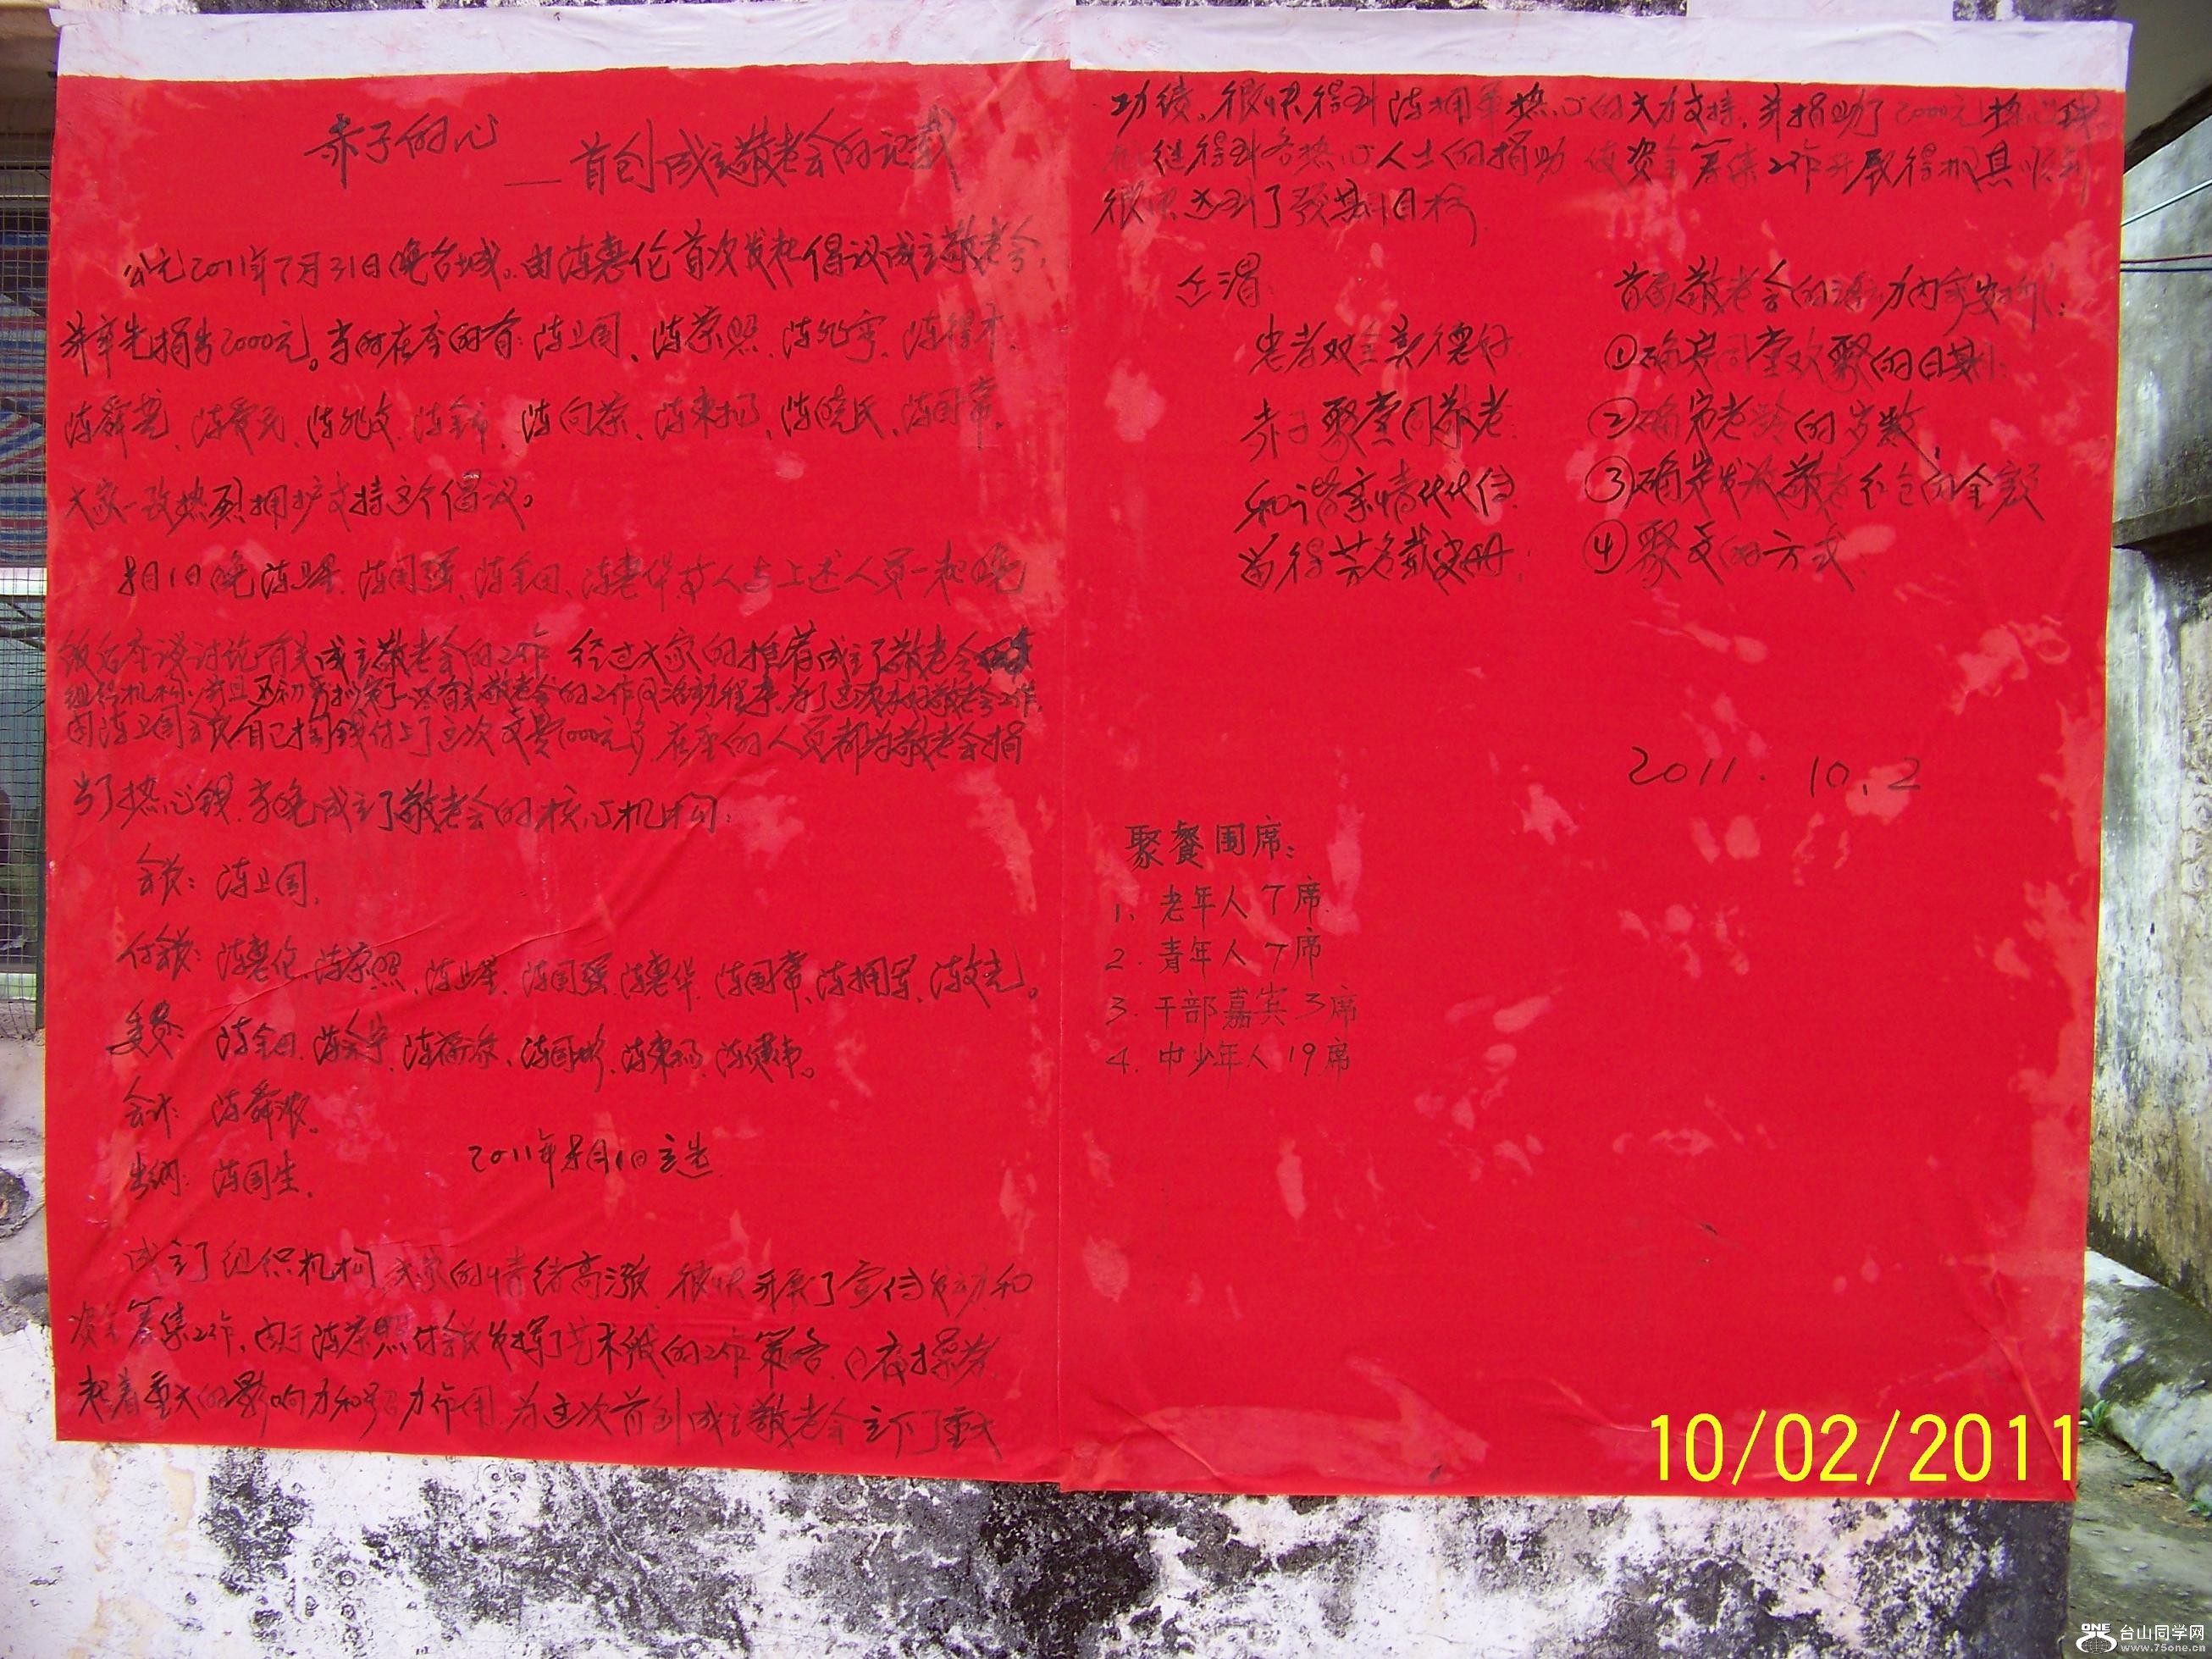 赤子的心
——首创成立敬老会的记载
公元2011年7月31日晚台城。由陈惠伦首次发起倡议成立敬老会,
并率先捐出2000元。当时在座的有:陈卫国、陈荣照、陈兆宁、陈
陈舜 、陈 、陈兆文、陈 、陈向荣、陈 、陈晓民、陈国常。
大家一致热烈拥护支持这个倡议。
8月1日晚陈 、陈国强、陈金田、陈惠华等人与上述人员一起晚
饭后座谈讨论有关成立敬老会的工作 经过大家的推荐成立了敬老会
组织机构,并且 初 有关敬老会的工作及活动程序,为了 敬老会工作,
由陈卫国会长自己掏钱付上了这次 费1000元多,在座的人员都为敬老会捐
出了热心钱,当晚成立了敬老会的核心机构:
会长:陈卫国,
付会长:陈惠伦、陈荣照、陈 、陈国强、陈惠华、陈国常、陈拥军、陈文光。
委员:陈金田、陈 宁、陈 、陈国 、陈 、陈健伟。
会计:陈舜波。
出纳:陈国生。
2011年8月1日立选
成立了组织机构,大家的情绪高涨,很快开展了宣传发动和
资金筹集工作,由于陈荣照付会长发挥了艺术级的工作策略,日夜操劳
起着重大的影响力和 力作用,为这次首创成立敬老会立下了重大
功绩,很快得到陈拥军热心的大力支持,并捐助了2000元热心
继得到各热心人士的捐助,使资金筹集工作开展得极具顺利
很快达到了预期目标
正谓
忠孝双全美德好
赤子聚堂同敬老
和谐亲情代代传
留得芳名载史册
首届敬老会的活动内容安排:
①确定同堂欢聚的日期:
②确定老龄的岁数,
③确定发放敬老红包的金额
④聚 的方式
2011.10.2
聚餐围席:
1、老年人7席
2.青年人7席
3.干部嘉宾3席
4.中少年人19席
10/02/2011
ONE
台山同学网
www.75one.cn